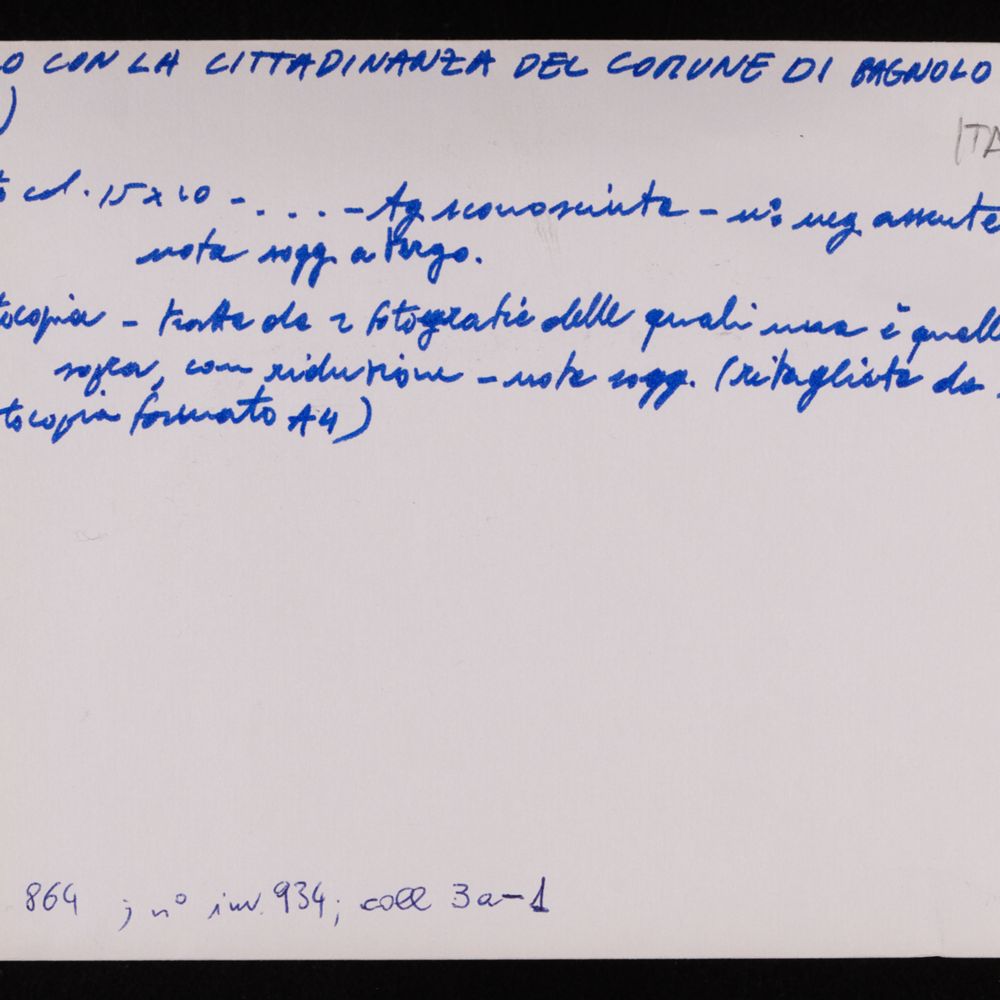 O CON LA CITTADINANZA DEL COMUNE DI BAGNOLO
)
ITA
to col. 15x10 - . . . - Ag sconosciuta - n° neg assente
nota sogg a tergo.
tocopia - tratta da 2 fotografie delle quali una è quella
sopra, con riduzione - nota sogg. (ritagliata da
tocopia formato A4)
864 ; n° inv. 934; coll 3a-1